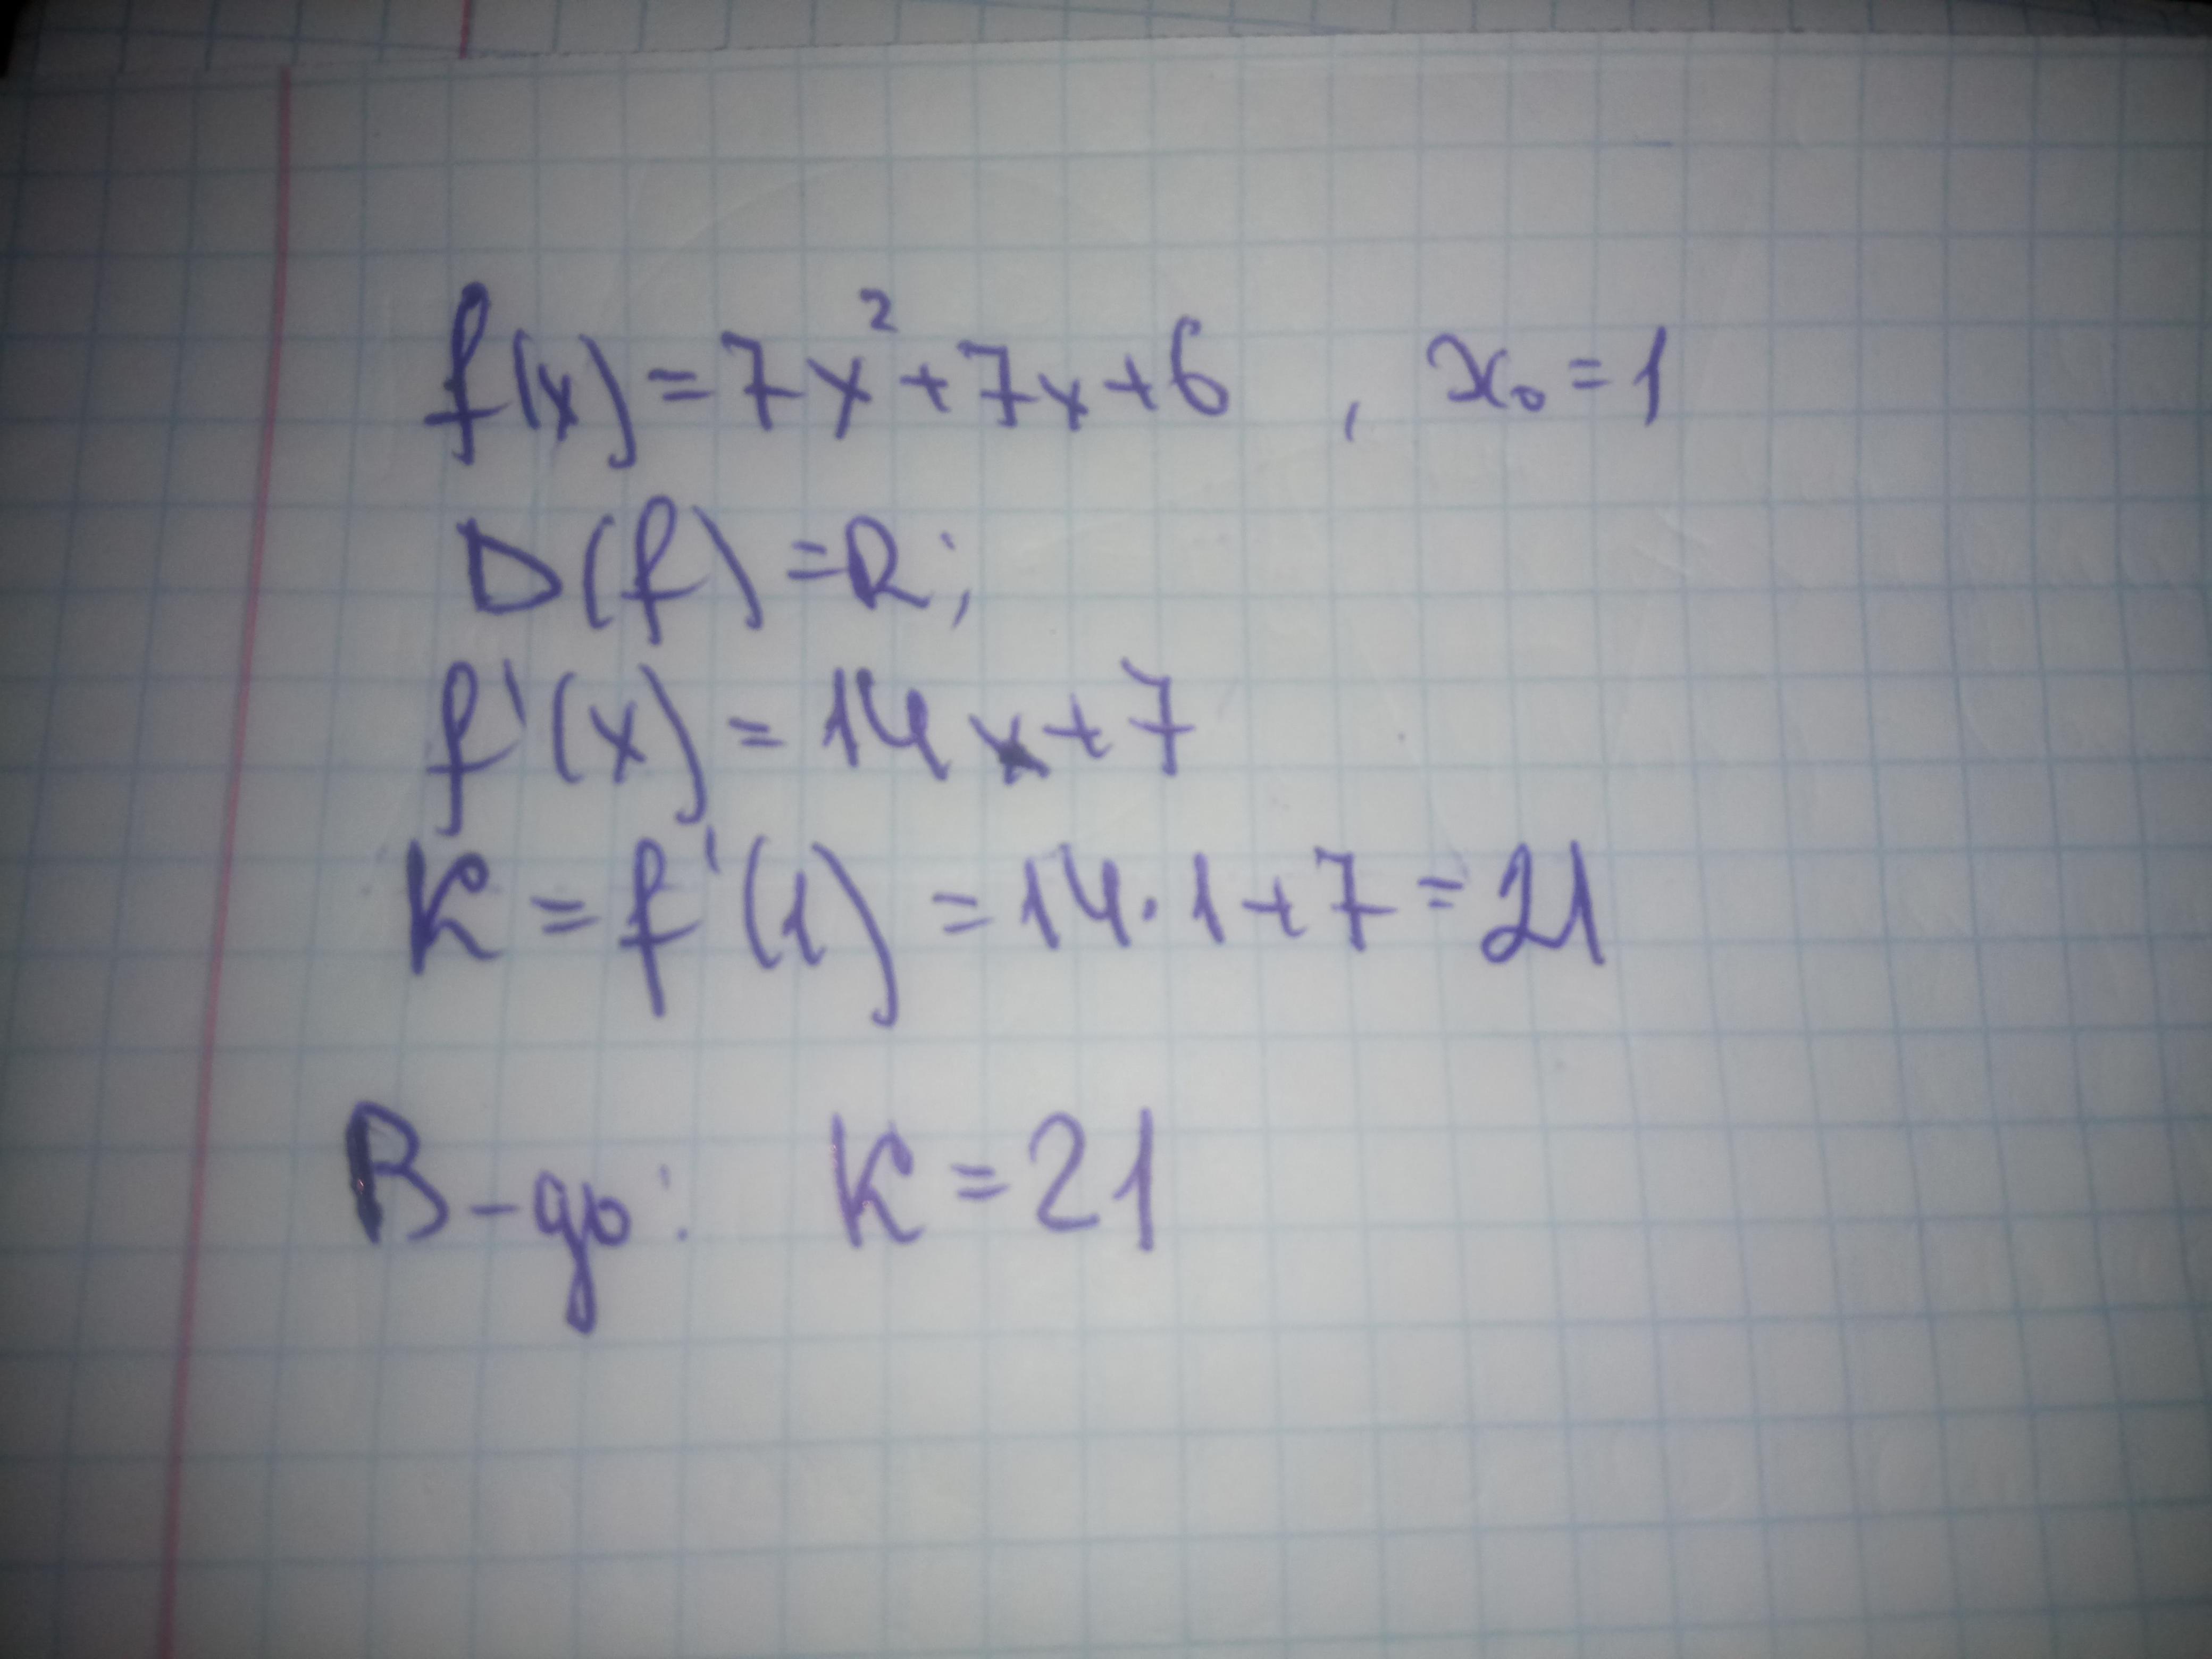 f(x) = 7x² + 7x + 6 , x₀ = 1
D(f) = R;
f'(x) = 14x + 7
K = f'(1) = 14 · 1 + 7 = 21
В-дь: K = 21